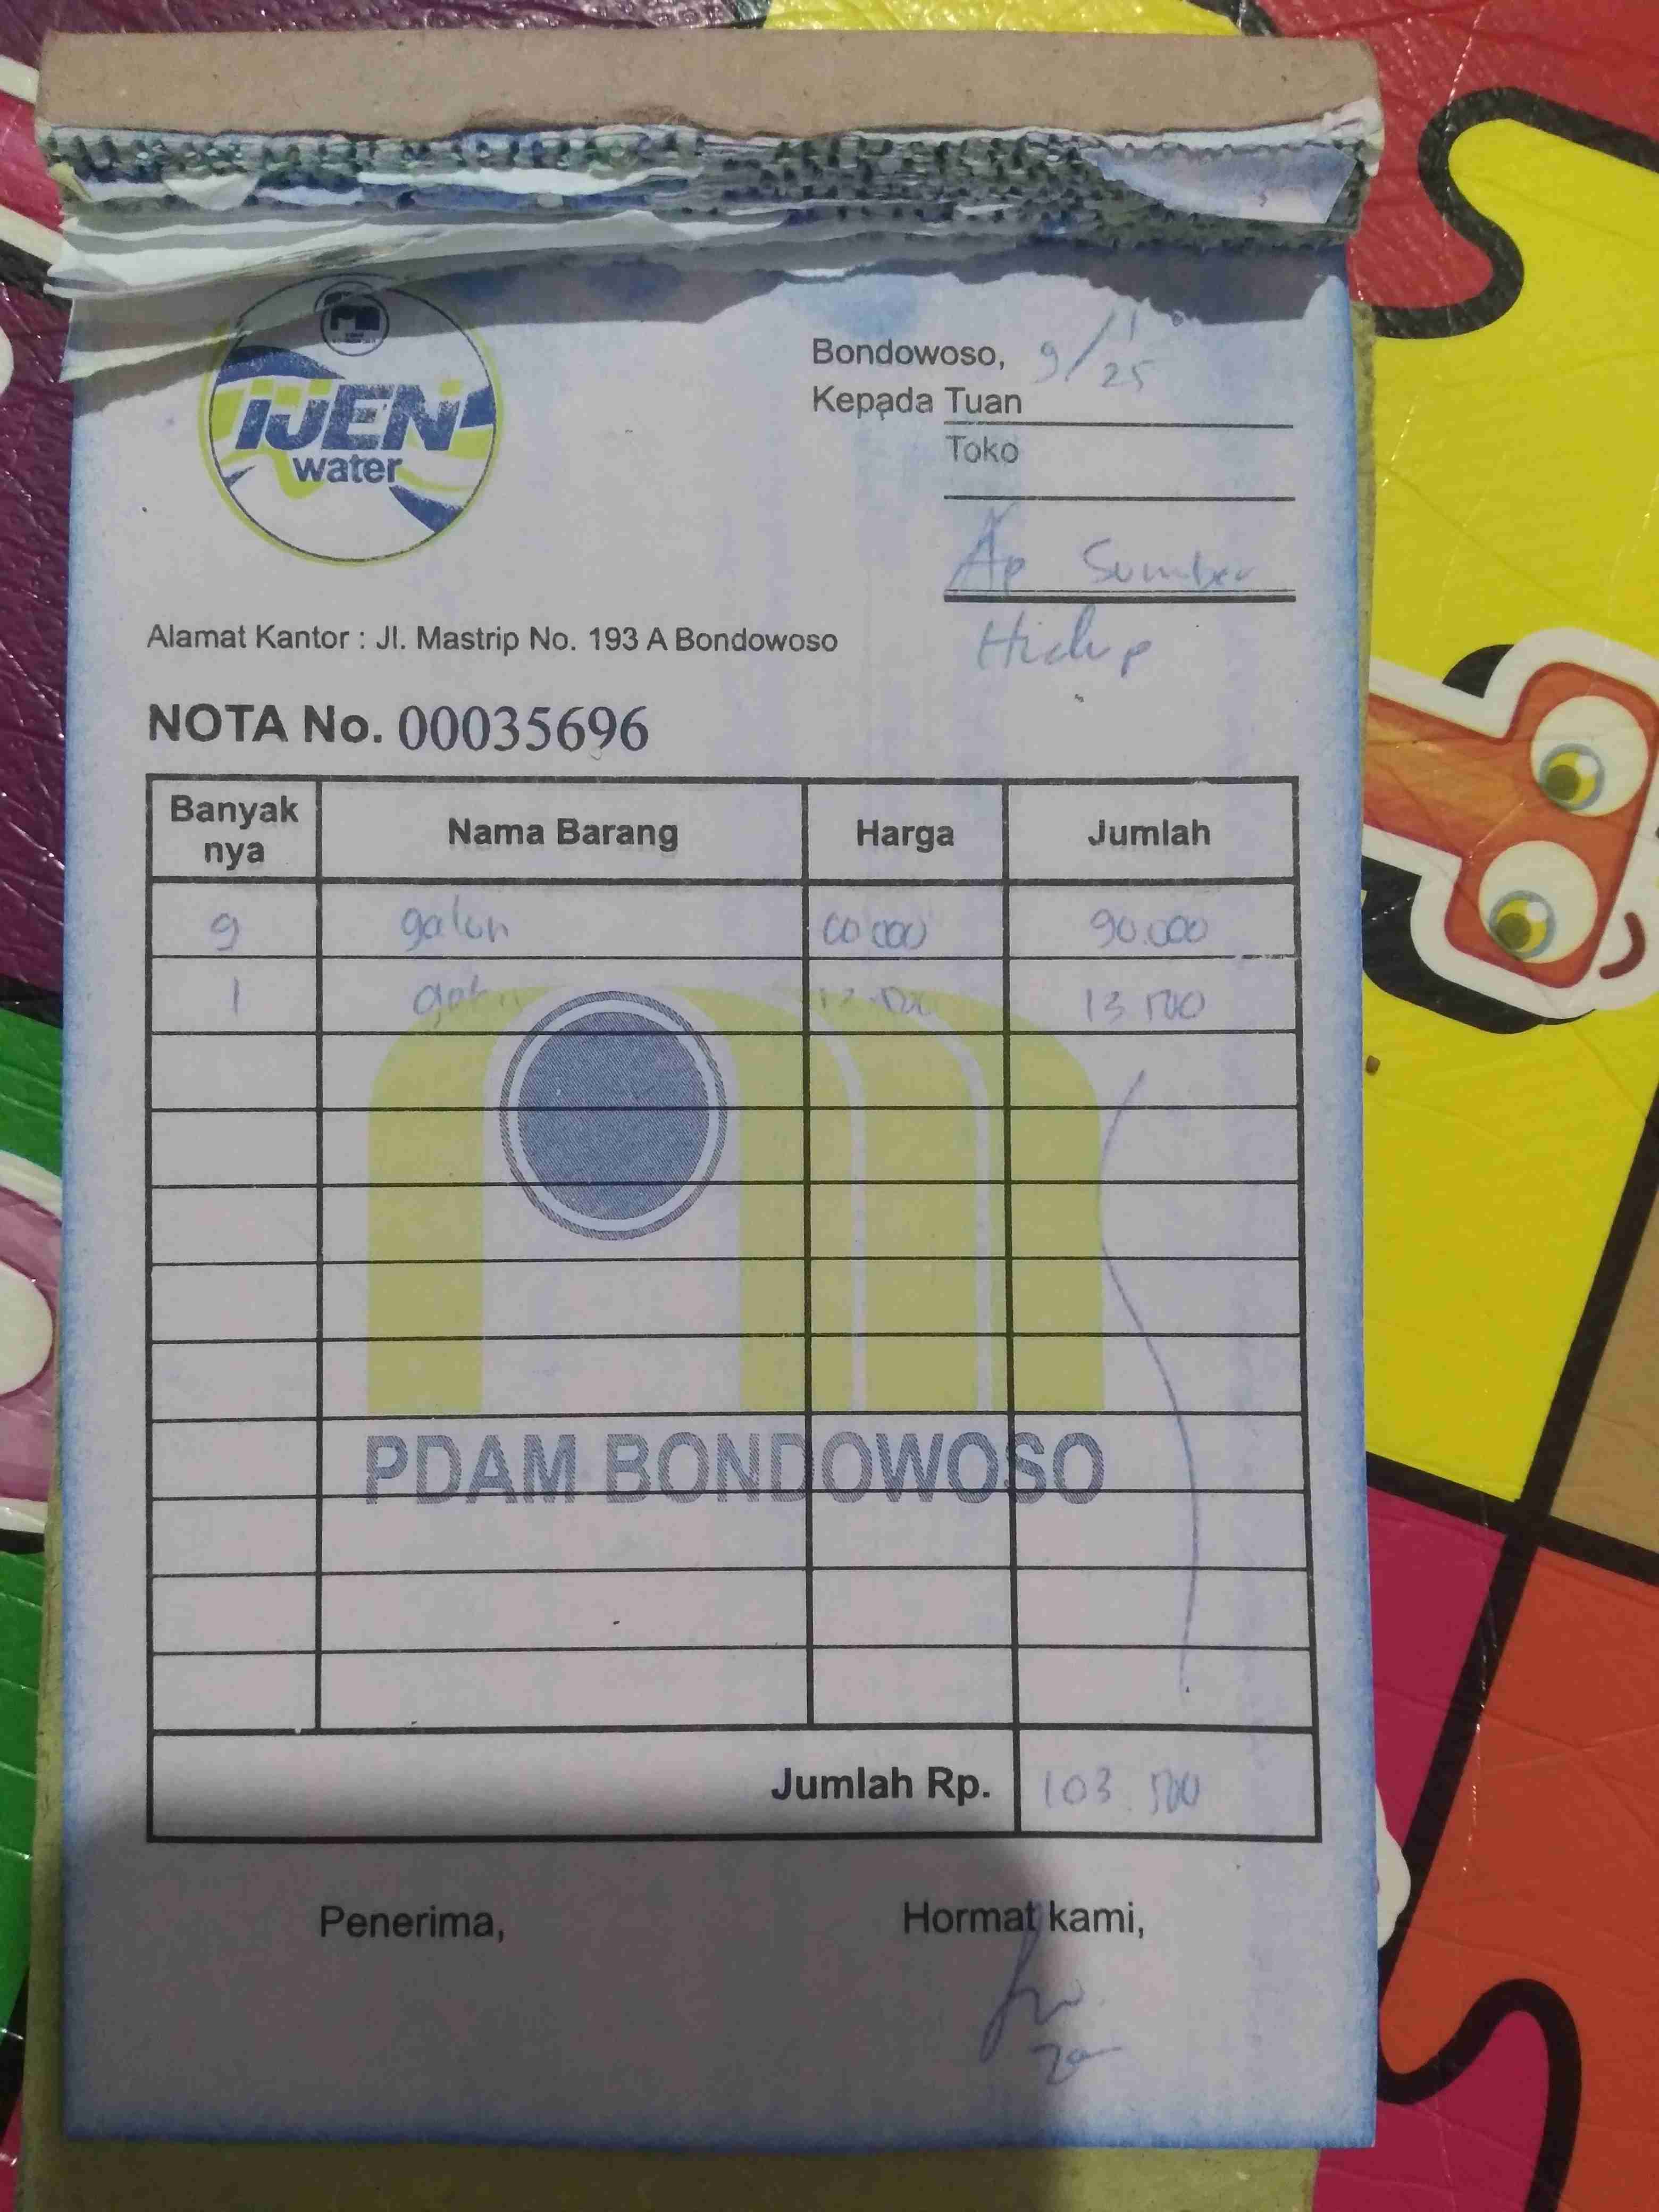 IJEN
water
Bondowoso, 9/1 25
Kepada Tuan
Toko
Ap Sumber
Hidup
Alamat Kantor : Jl. Mastrip No. 193 A Bondowoso
NOTA No. 00035696
Banyak nya Nama Barang Harga Jumlah
9 galon 10.000 90.000
1 galon 13.500
PDAM BONDOWOSO
Jumlah Rp. 103.500
Penerima, Hormat kami,